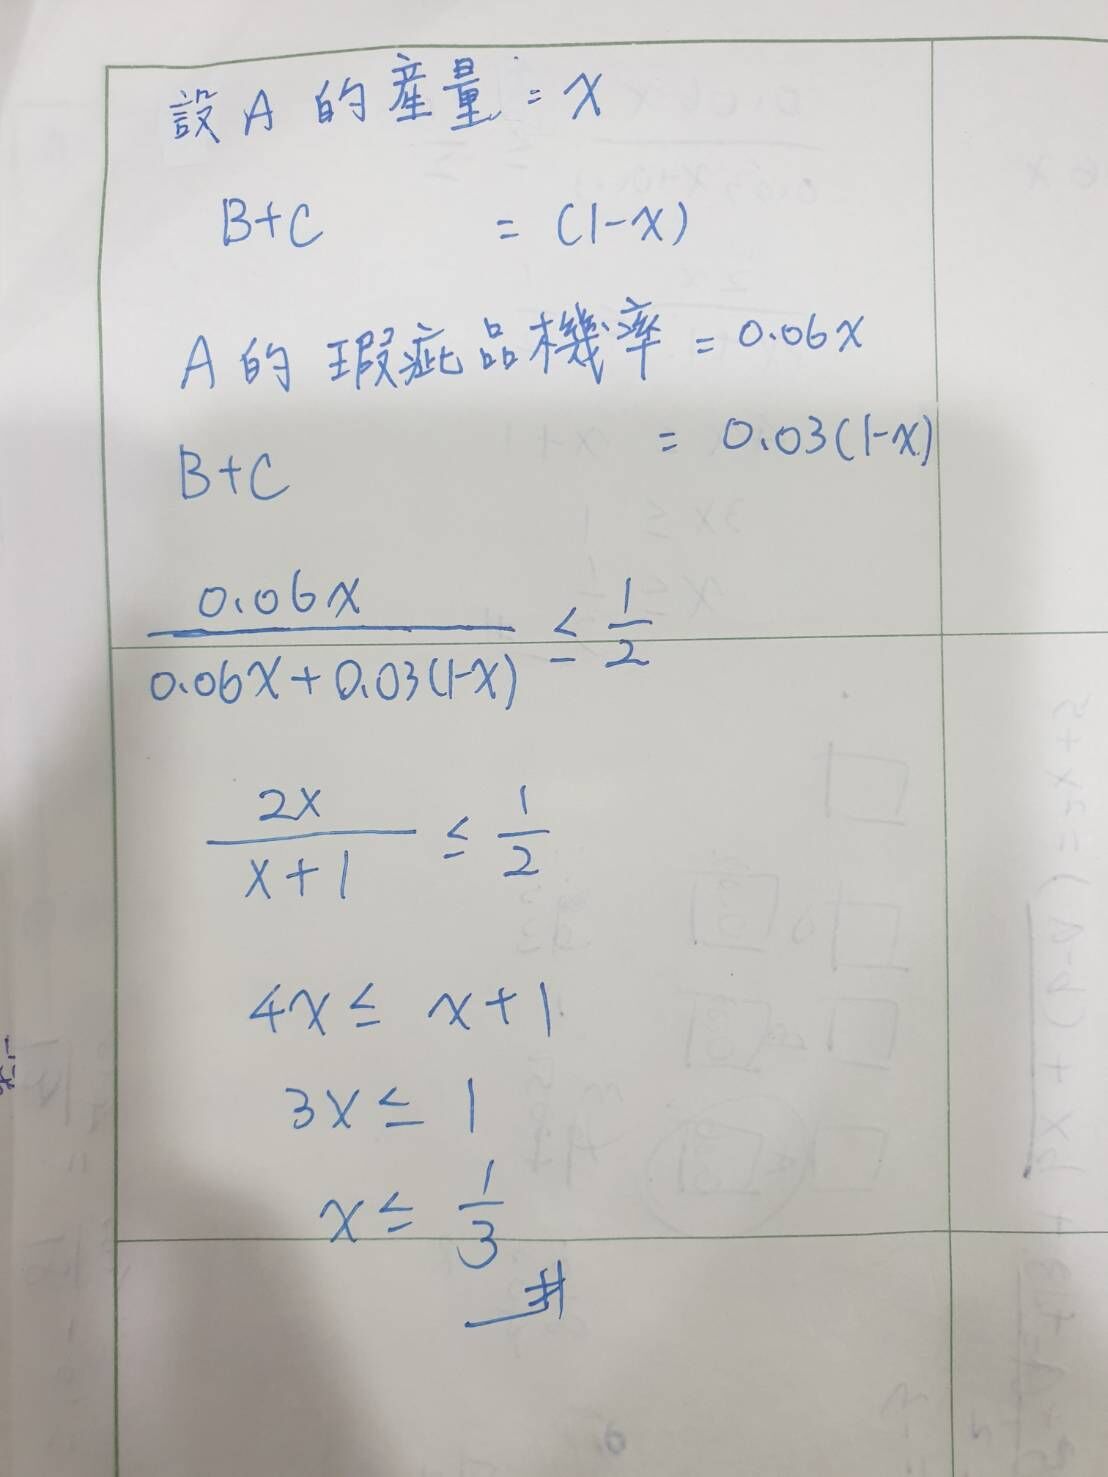 設A的產量 = x
B+C = (1-x)
A的瑕疵品機率 = 0.06x
B+C = 0.03(1-x)
0.06x / 0.06x+0.03(1-x) ≤ 1/2
2x / x+1 ≤ 1/2
4x ≤ x+1
3x ≤ 1
x ≤ 1/3
#